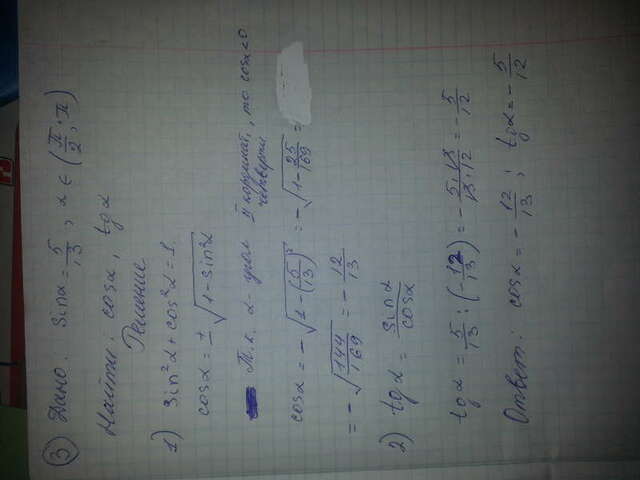 ③ Дано: sinα = 5/13; α ∈ (π/2; π)
Найти: cosα, tgα
Решение
1) sin²α + cos²α = 1
cosα = ± √(1 - sin²α)
Т.к. α - угол II координат. четверти, то cosα < 0
cosα = - √(1 - (5/13)²) = - √(1 - 25/169) =
= - √(144/169) = - 12/13
2) tgα = sinα/cosα
tgα = 5/13 : (- 12/13) = - 5·13/13·12 = - 5/12
Ответ: cosα = - 12/13; tgα = - 5/12